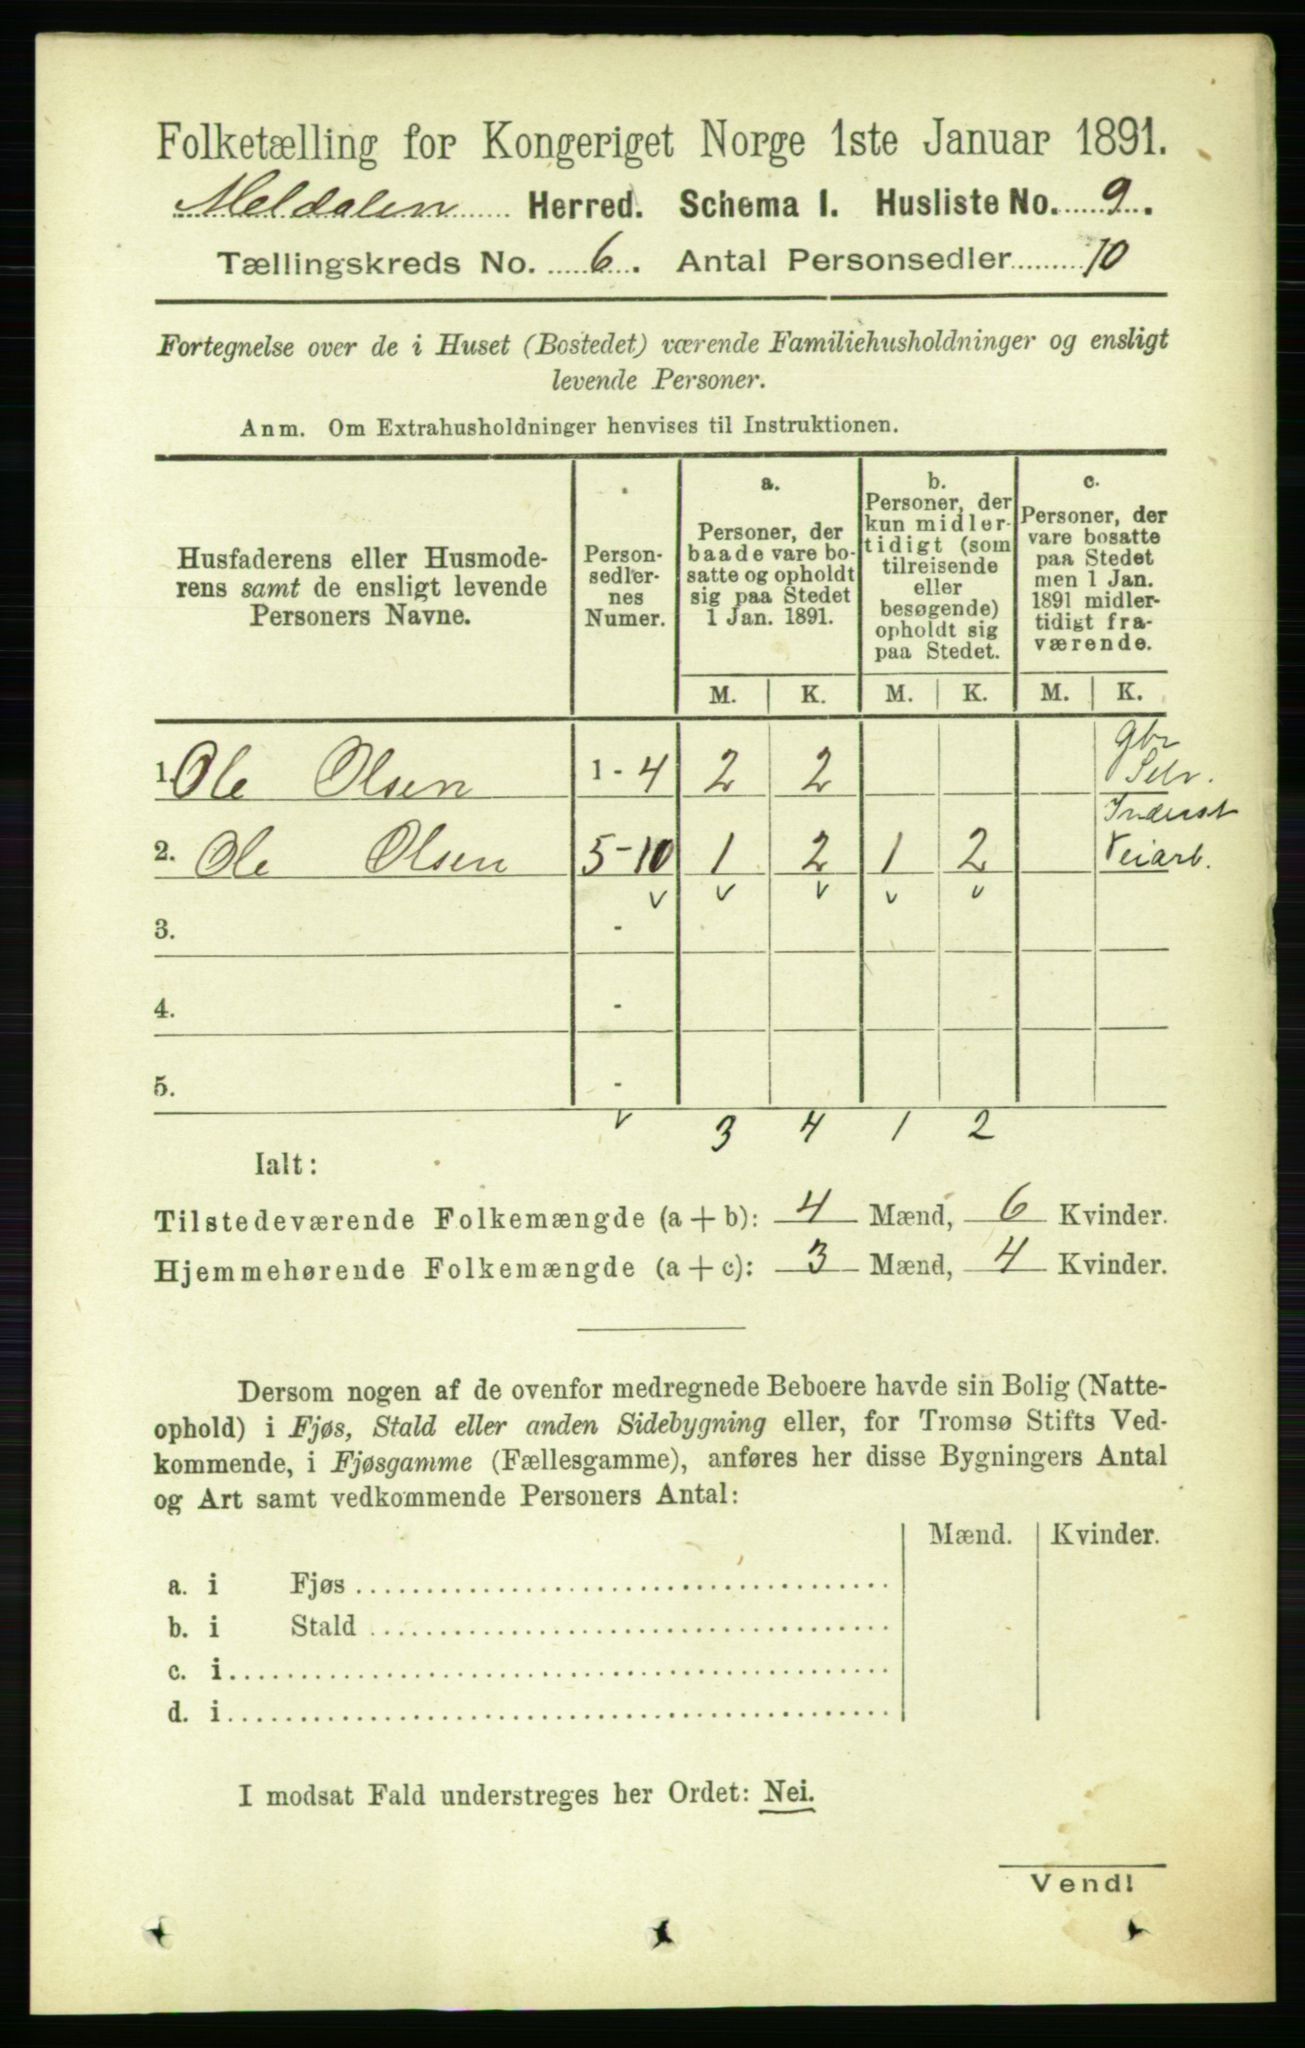 Folketælling for Kongeriget Norge 1ste Januar 1891.
Meldalen Herred. Schema 1. Husliste No. 9.
Tællingskreds No. 6. Antal Personsedler 10
Fortegnelse over de i Huset (Bostedet) værende Familiehusholdninger og ensligt
levende Personer.
Anm. Om Extrahusholdninger henvises til Instruktionen.
Husfaderens eller Husmode-
rens samt de ensligt levende
Personers Navne.
Person-
sedler-
nes
Numer.
a.
Personer, der
baade vare bo-
satte og opholdt
sig paa Stedet
1 Jan. 1891.
b.
Personer, der
kun midler-
tidigt (som
tilreisende
eller
besøgende)
opholdt sig
paa Stedet.
c.
Personer, der
vare bosatte
paa Stedet
men 1 Jan.
1891 midler-
tidigt fra-
værende.
M. K. M. K. M. K.
Gbr
1. Ole Olsen 1-4 2 2 Selv.
Inderst
2. Ole Olsen 5-10 1 2 1 2 Veiarb.
v v v v v
3. -
4. -
5. -
v 3 4 1 2
Ialt:
Tilstedeværende Folkemængde (a + b): 4 Mænd, 6 Kvinder.
Hjemmehørende Folkemængde (a + c): 3 Mænd, 4 Kvinder.
Dersom nogen af de ovenfor medregnede Beboere havde sin Bolig (Natte-
ophold) i Fjøs, Stald eller anden Sidebygning eller, for Tromsø Stifts Ved-
kommende, i Fjøsgamme (Fællesgamme), anføres her disse Bygningers Antal
og Art samt vedkommende Personers Antal:
Mænd. Kvinder.
a. i Fjøs
b. i Stald
c. i
d. i
I modsat Fald understreges her Ordet: Nei.
Vend!